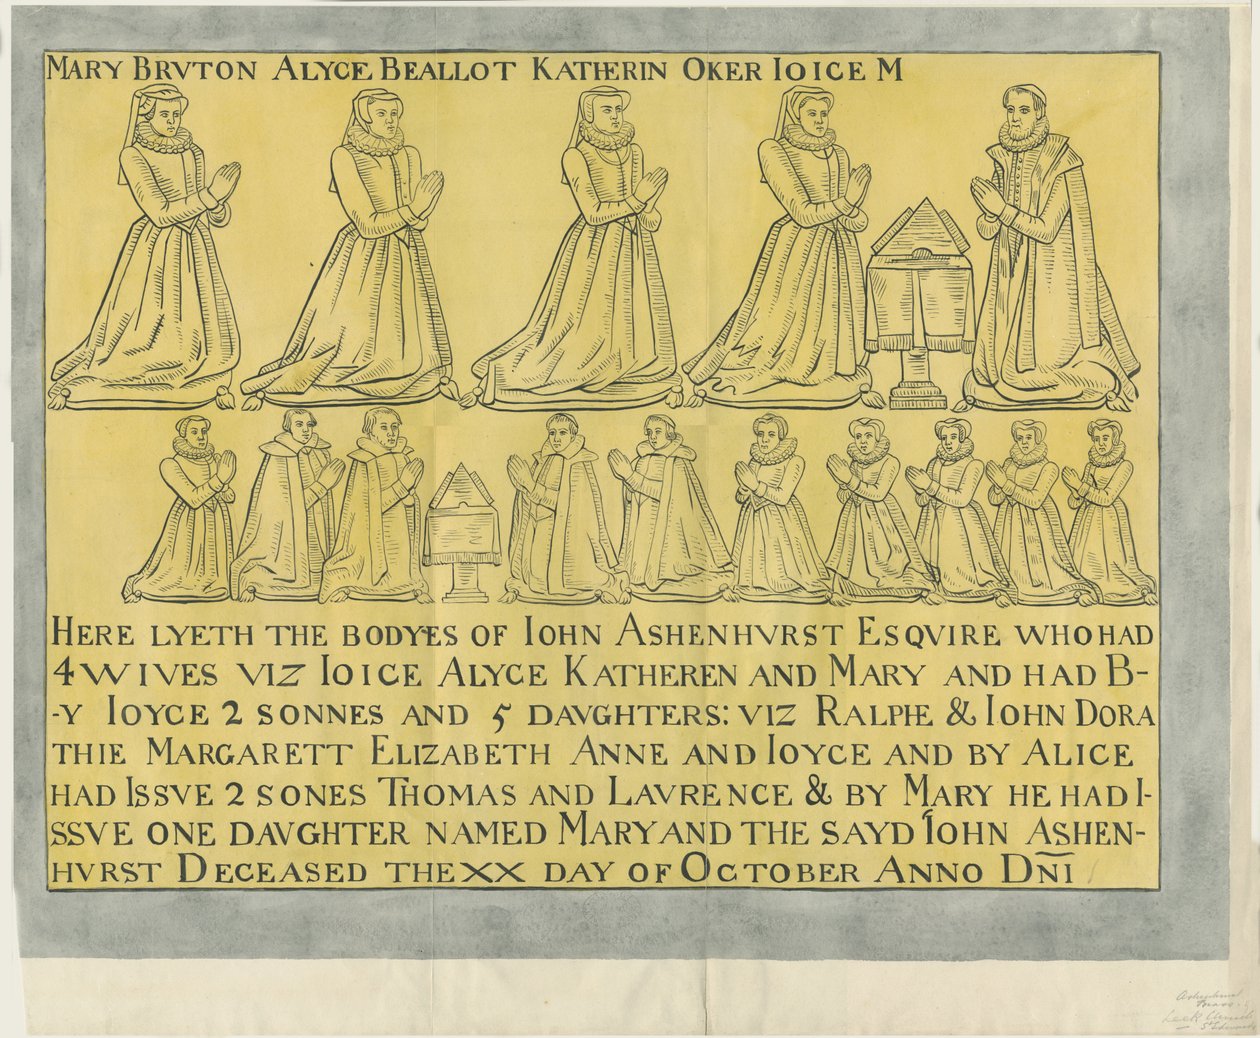 MARY BRVTON ALYCE BEALLOT KATHERIN OKER IOICE M
HERE LYETH THE BODYES OF IOHN ASHENHVRST ESQVIRE WHO HAD
4 WIVES VIZ IOICE ALYCE KATHEREN AND MARY AND HAD B-
-Y IOYCE 2 SONNES AND 5 DAVGHTERS: VIZ RALPHE & IOHN DORA
THIE MARGARETT ELIZABETH ANNE AND IOYCE AND BY ALICE
HAD ISSVE 2 SONES THOMAS AND LAVRENCE & BY MARY HE HAD I-
SSVE ONE DAVGHTER NAMED MARY AND THE SAYD IOHN ASHEN-
HVRST DECEASED THE XX DAY OF OCTOBER ANNO DÑI
Leek Church